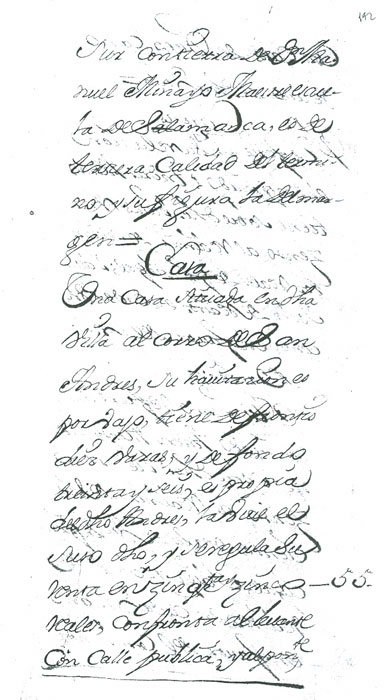 192
Sur con tierra de Dn Ma
nuel Minayo Maestrescue-
la de Salamanca, es de
tercera Calidad del termi
no, y su figura la del mar-
gen =
Casa
Una Casa situada en dha
Villa al corro de San
Andres, su havitazion es
por vajo, tiene de frente
diez Varas, y de fondo
treinta y seis, es propia
de dho Andres, la vive el
suso dho, y se regula su
renta en zinqta y zinco — 55
reales, Confronta al levante
Con Calle publica, y al ponte